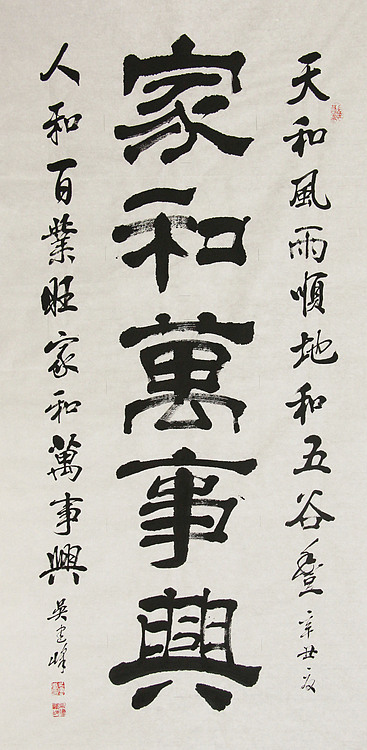 天和風雨順地和五谷登 辛丑夏
家和萬事興
人和百業旺家和萬事興 吳建峰